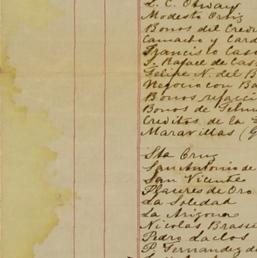 L. C. Otway
Modesto Ortiz
Bonos del Cred
Camacho y Card
Francisco Cas
J. Rafael de Cas
Felipe N. del B
Negocio con Ba
Bonos refacci
Bonos de
Creditos de la
Maravillas (G
Sta Cruz
San Antonio de
San Vicente
Placeres de Oro
La Soledad
La Arizona
Nicolas Brasse
Pedro
P. Fernandez de